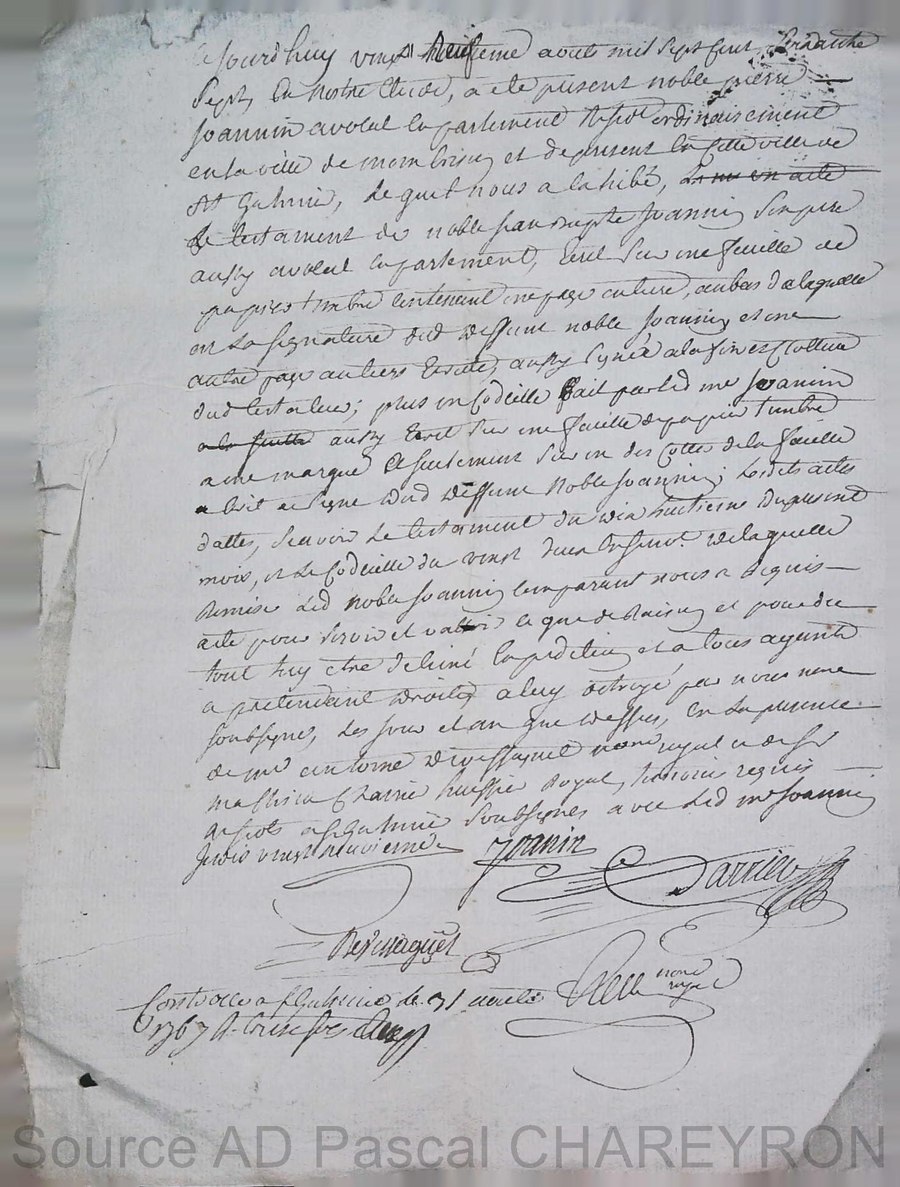 jourd'huy vingt neufieme aoust mil sept cent soixante
sept, en nostre etude, a ete present noble pierre
Joannin avocat en parlement resident ordinairement
en la ville de montbrison et de present en cette ville de
St Galmier, lequel nous a exhibé,
Le testament de noble jean Joannin son pere
aussy avocat en parlement, Ecrit sur une feuille de
papier timbré contenant une page entiere, au bas de laquelle
est La signature dud deffunt noble Joannin, et une
autre page au tiers Ecrite, aussy signée a la fin et Clotture
dud testament; plus un Codicille fait par led me Joannin
a la feuille aussy Ecrit sur une feuille de papier timbré
a une marque et seulement sur un des Cottés de la feuille
Ecrit et signé dud deffunt Noble Joannin; Lesdits actes
dattés, scavoir Le testament du dix huitieme du present
mois, et Le Codicille du vingt deux De laquelle
Remise Led noble Joannin comparant nous a requis
acte pour servir et valloir ce que de Raison et pour du
tout luy etre delivré Expedition et a tous ayants
a pretendant droits, a luy octroyé par nous nore
soubsignés, Les jour et an que dessus, En La presence
de me antoine Dermagnet nore royal et de sr
mathieu Charrin huissier Royal, temoins requis
a St Galmier soubsignés avec Led me Joannin
vingt neuvieme
Joanin
Darrieu
Dermagnet
nore
royal
Controllé a St Galmier Le 31 aoust
1767 R. treize sols
Source AD Pascal CHAREYRON